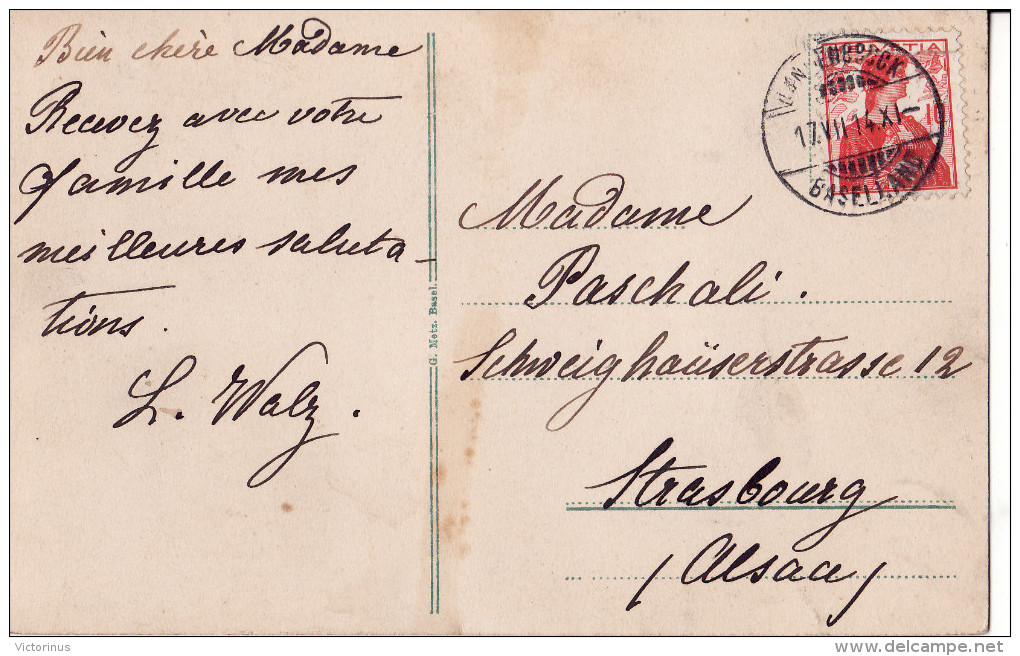 Bien chère Madame
Recevez avec votre
famille mes
meilleures saluta-
tions.
L. Walz.
G. Metz. Basel.
HELVETIA
10
LANGENBRUCK
17.VII.14.XI
BASELLAND
Madame
Paschali.
Schweighaüserstrasse 12
Strasbourg
(Alsace)
Victorinus
www.delcampe.net